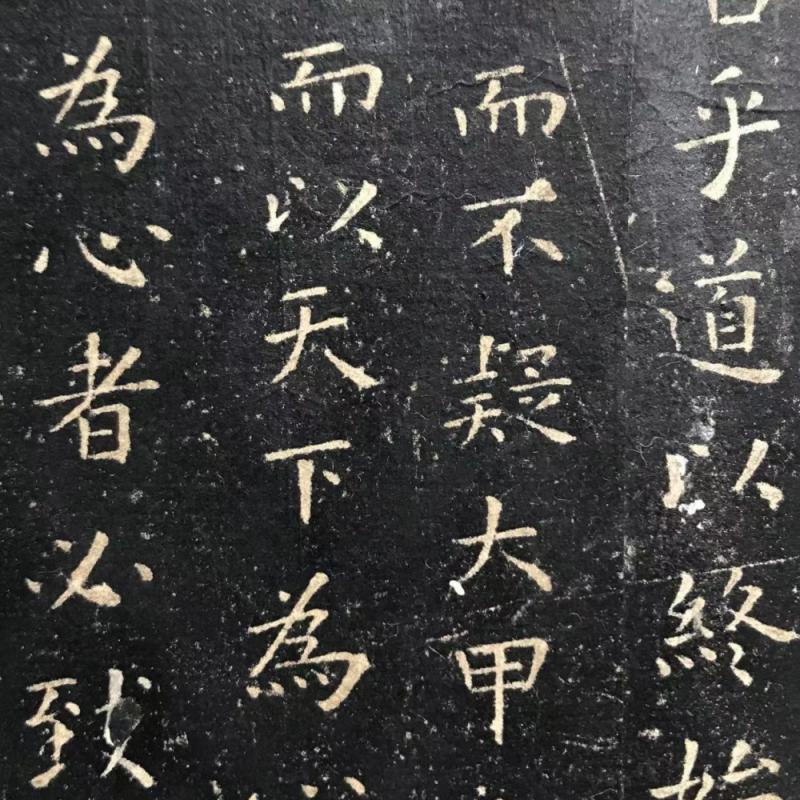 乎道以終始
而不疑大甲
而以天下為
為心者必致